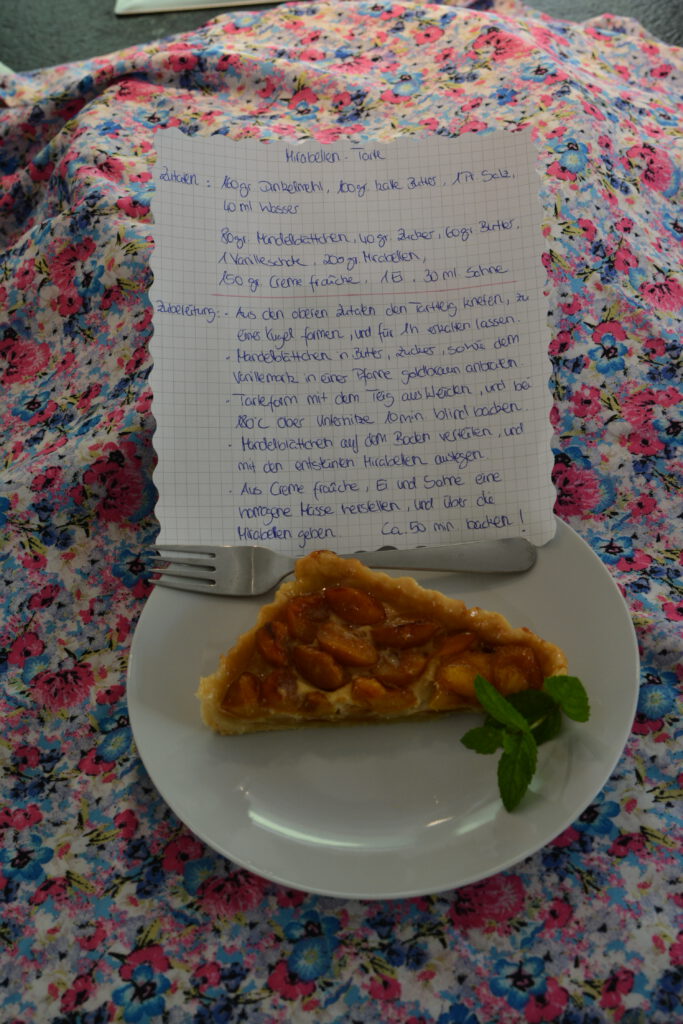 Mirabellen - Tarte
Zutaten : 160gr. Dinkelmehl, 100gr. kalte Butter, 1 Pr. Salz,
40 ml Wasser
80gr. Mandelblättchen, 40gr. Zucker, 60gr. Butter,
1 Vanilleschote, 200gr. Mirabellen,
150 gr. Creme fraîche, 1 Ei, 30 ml. Sahne
Zubereitung: - Aus den oberen Zutaten den Tarteteig kneten, zu
einer Kugel formen, und für 1h erkalten lassen.
- Mandelblättchen in Butter, Zucker, sowie dem
Vanillemark in einer Pfanne goldbraun anbraten.
- Tarteform mit dem Teig auskleiden, und bei
180°C Ober Unterhitze 10min blind backen.
- Mandelblättchen auf dem Boden verteilen, und
mit den entsteinten Mirabellen auslegen.
- Aus Creme fraîche, Ei und Sahne eine
homogene Masse herstellen, und über die
Mirabellen geben. Ca. 50 min. backen!